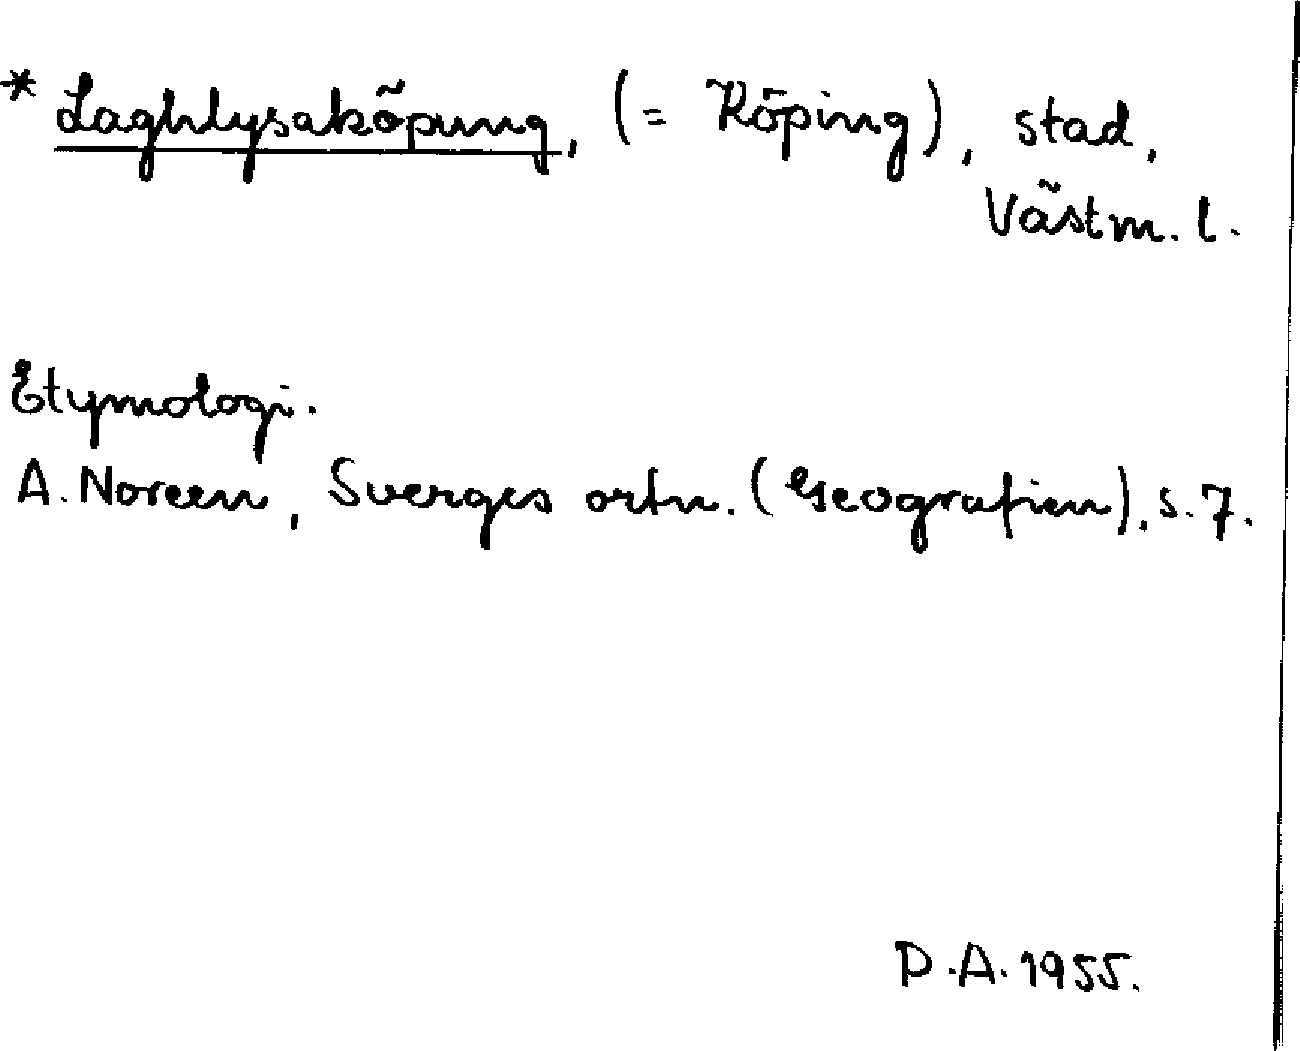 * Laghlysaköpung, (= Köping), stad,
Västm. l.
Etymologi.
A. Noreen, Sverges ortn. (Geografien), s. 7.
D.A. 1955.